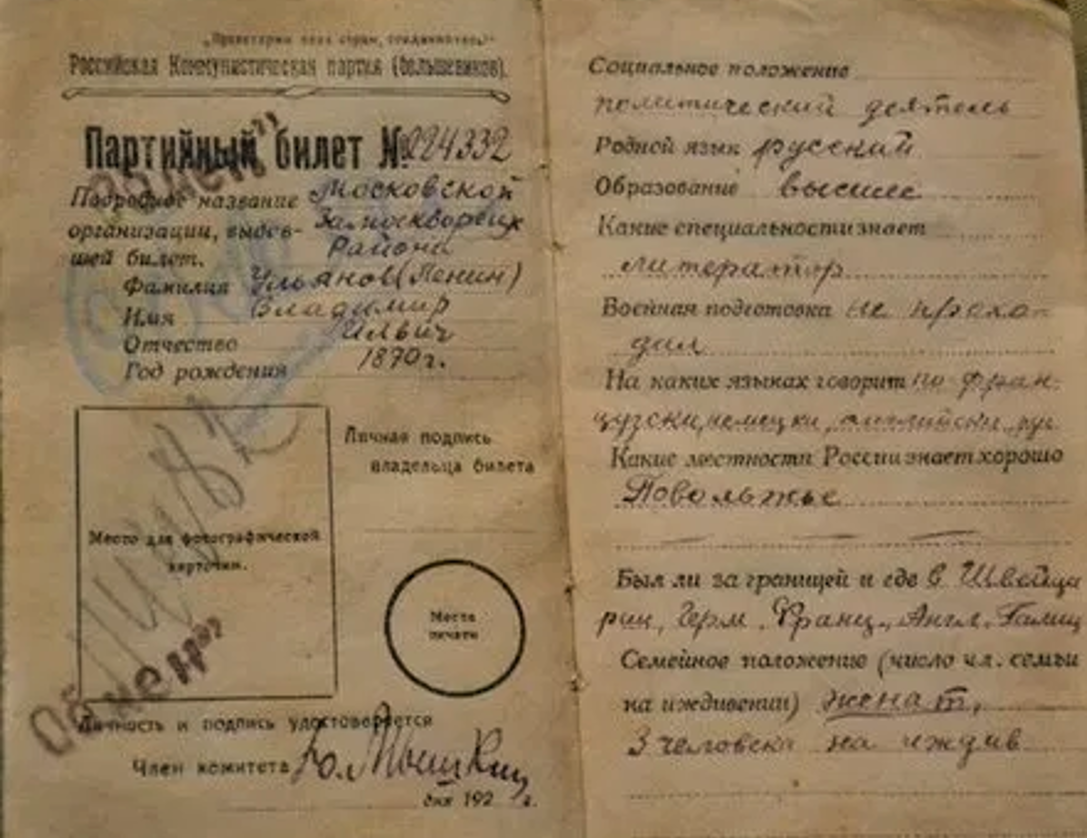 „Пролетарии всех стран, соединяйтесь!“
Российская Коммунистическая партия (большевиков).
Партийный билет № 224332
Подробное название Московской
организации, выдав- Замоскворецк
шей билет. Района
Фамилия Ульянов (Ленин)
Имя Владимир
Отчество Ильич
Год рождения 1870 г.
Место для фотографической
карточки.
Личная подпись
владельца билета
Место
печати
„Обмен“
Личность и подпись удостоверяется
Член комитета
дня 192 г.
Социальное положение
политический деятель
Родной язык русский
Образование высшее
Какие специальности знает
литератор
Военная подготовка не прохо-
дил
На каких языках говорит по фран-
цузски, немецки, английски, рус
Какие местности России знает хорошо
Поволжье
Был ли за границей и где в Швейца
рии, Герм., Франц., Англ., Галиц
Семейное положение (число чл. семьи
на иждивении) женат,
3 человека на иждив